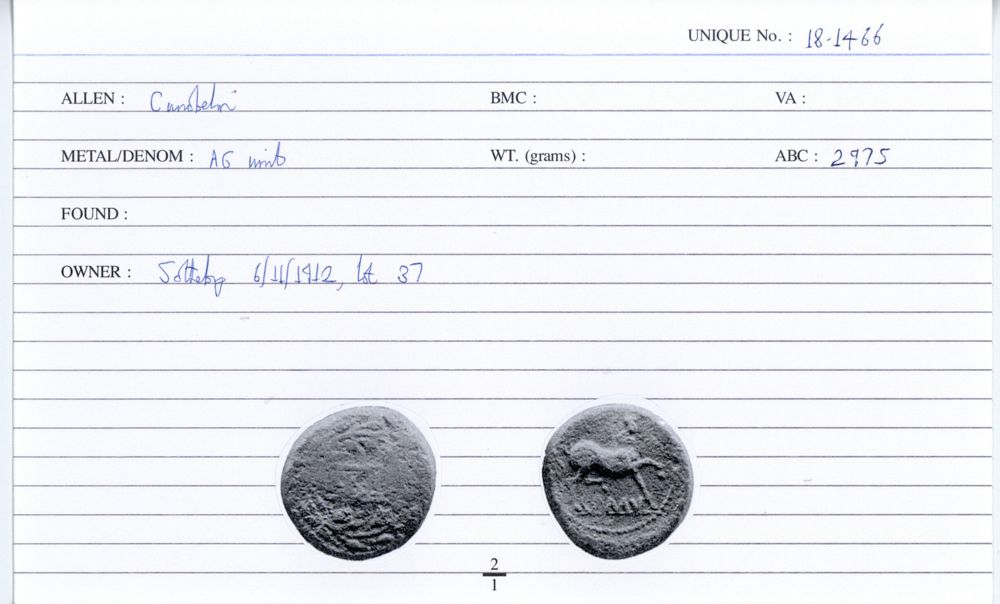 UNIQUE No. : 18-1466
ALLEN : Cunobelin BMC : VA :
METAL/DENOM : AG unit WT. (grams) : ABC : 2975
FOUND :
OWNER : Sotheby 6/11/1912, lot 37
2
1